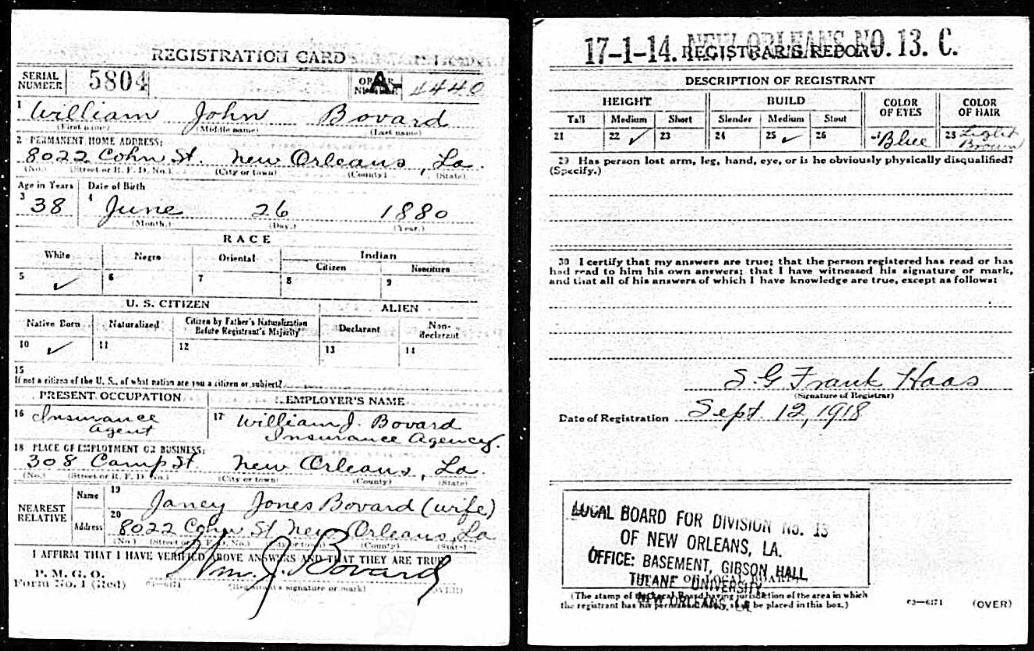 REGISTRATION CARD
SERIAL NUMBER 5804 ORDER NUMBER A 4440
1 William John Bovard
(First name) (Middle name) (Last name)
2 PERMANENT HOME ADDRESS:
8022 Cohn St. New Orleans, La.
(No.) (Street or R. F. D. No.) (City or town) (County) (State)
Age in Years Date of Birth
3 38 4 June 26 1880
(Month.) (Day.) (Year.)
RACE
White Negro Oriental Indian
Citizen Noncitizen
5 ✓ 6 7 8 9
U. S. CITIZEN ALIEN
Native Born Naturalized Citizen by Father's Naturalization Before Registrant's Majority Declarant Non-declarant
10 ✓ 11 12 13 14
15
If not a citizen of the U. S., of what nation are you a citizen or subject?
PRESENT OCCUPATION EMPLOYER'S NAME
16 Insurance Agent 17 William J. Bovard Insurance Agency.
18 PLACE OF EMPLOYMENT OR BUSINESS:
308 Camp St. New Orleans, La.
(No.) (Street or R. F. D. No.) (City or town) (County) (State)
NEAREST RELATIVE Name 19 Janey Jones Bovard (wife)
Address 20 8022 Cohn St New Orleans, La
(No.) (City or town) (County) (State)
I AFFIRM THAT I HAVE VERIFIED ABOVE ANSWERS AND THAT THEY ARE TRUE
P. M. G. O.
Form No. 1 (Red) Wm. J. Bovard
(Registrant's signature or mark) (OVER)
17-1-14. NEW ORLEANS NO. 13. C.
REGISTRAR'S REPORT
DESCRIPTION OF REGISTRANT
HEIGHT BUILD COLOR OF EYES COLOR OF HAIR
Tall Medium Short Slender Medium Stout
21 22 ✓ 23 24 25 ✓ 26 Blue 28 Light Brown
29 Has person lost arm, leg, hand, eye, or is he obviously physically disqualified?
(Specify.)
30 I certify that my answers are true; that the person registered has read or has
had read to him his own answers; that I have witnessed his signature or mark,
and that all of his answers of which I have knowledge are true, except as follows:
S. G Frank Haas
(Signature of Registrar)
Date of Registration Sept. 12, 1918
LOCAL BOARD FOR DIVISION NO. 13
OF NEW ORLEANS, LA.
OFFICE: BASEMENT, GIBSON HALL
TULANE UNIVERSITY
NEW ORLEANS, LA
(The stamp of the Local Board having jurisdiction of the area in which
the registrant has his permanent home shall be placed in this box.)
03—6171 (OVER)